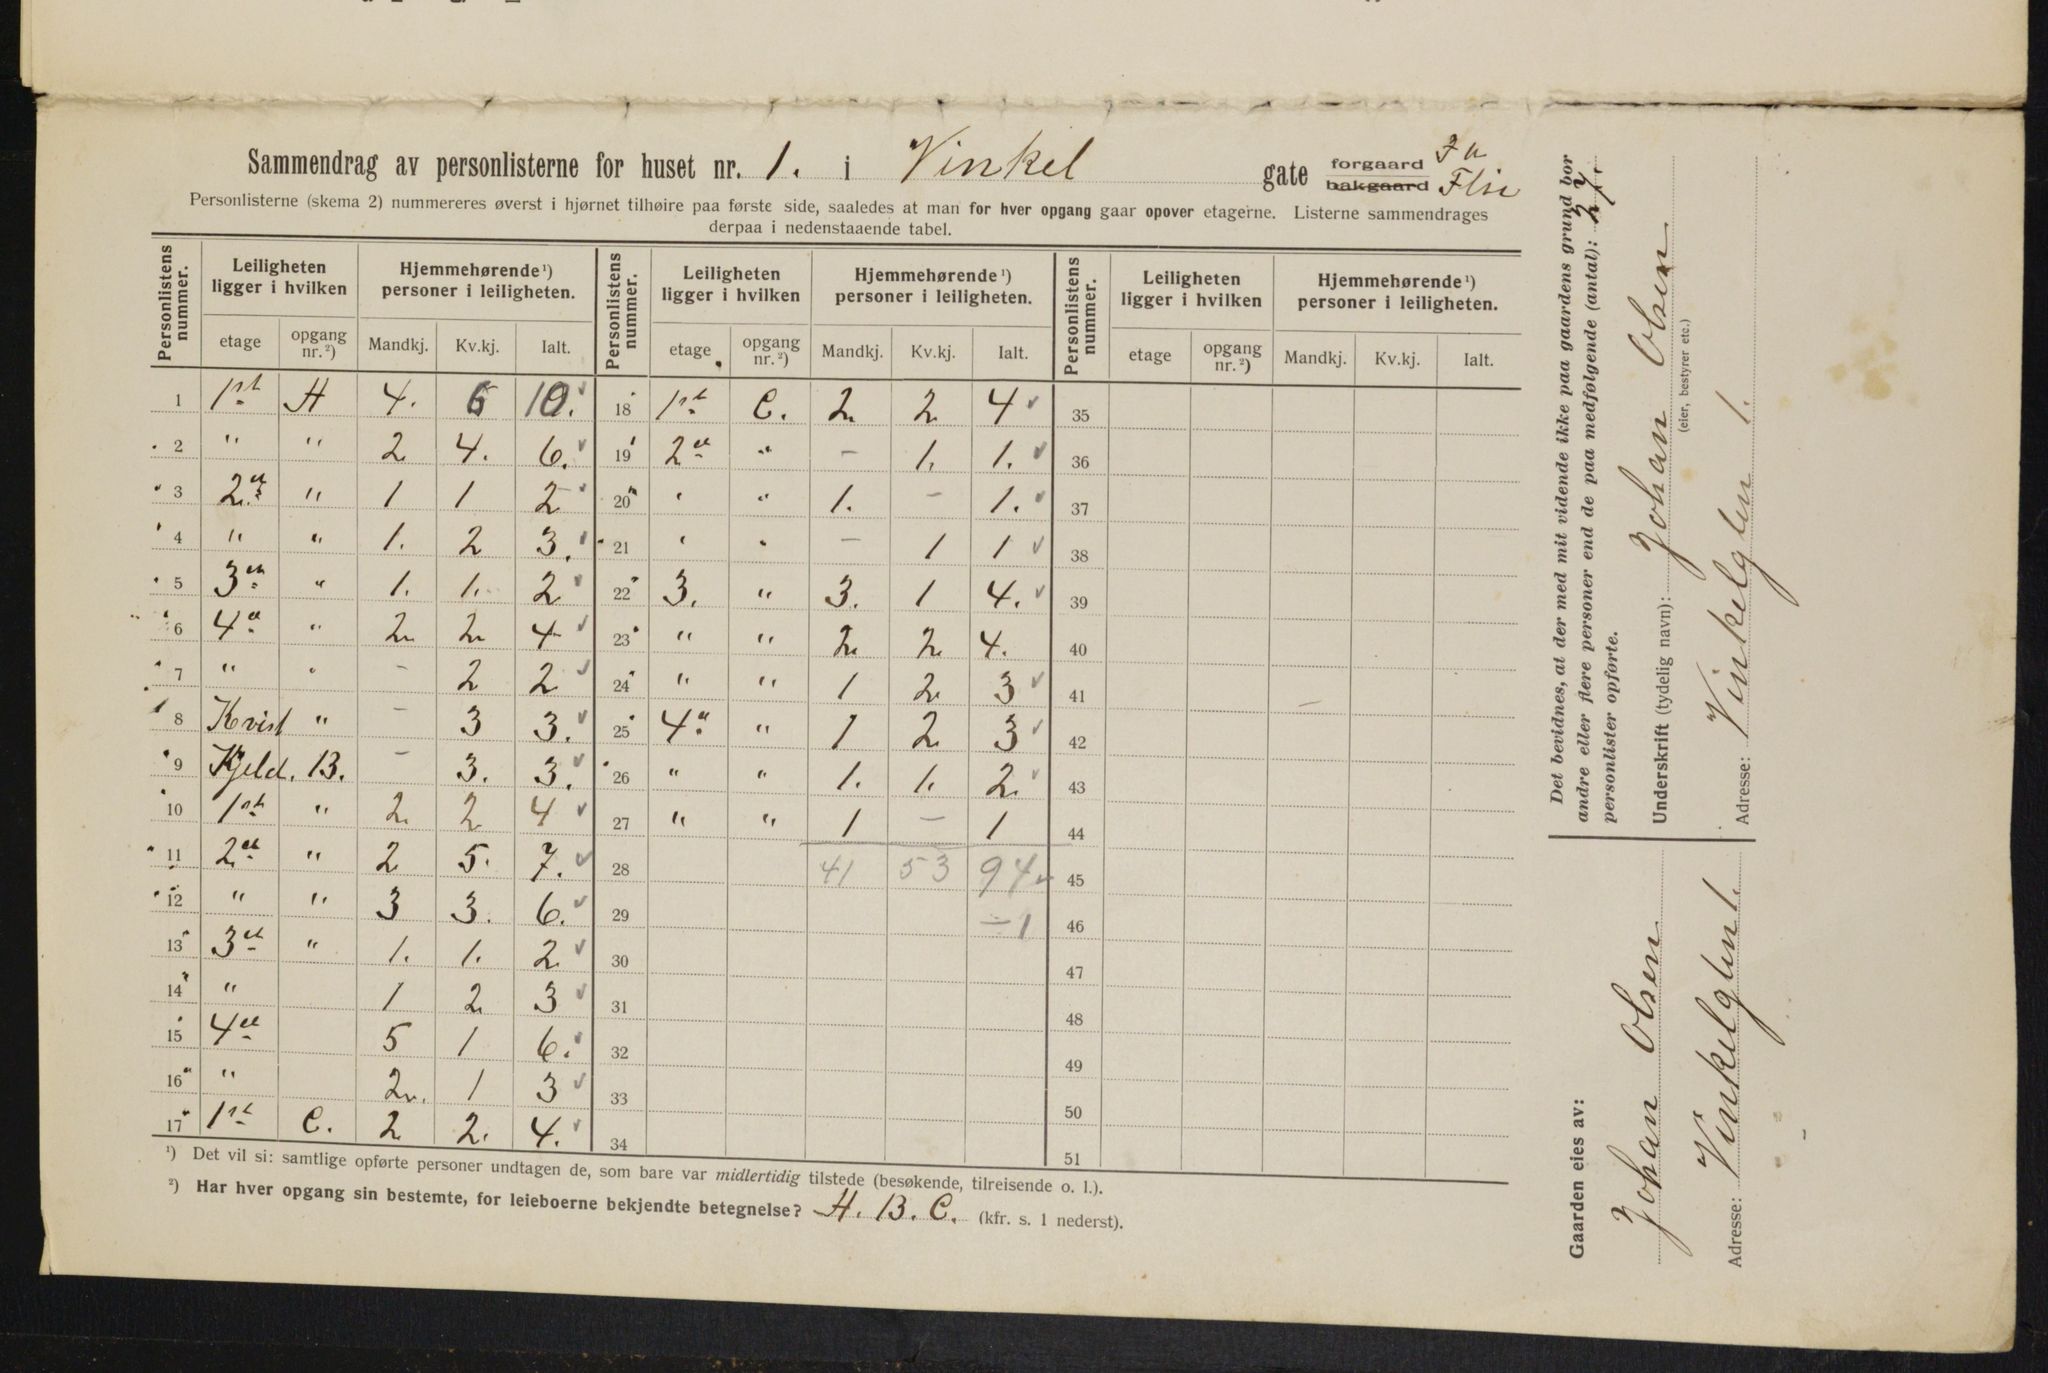 Sammendrag av personlisterne for huset nr. 1. i Vinkel gate forgaard bakgaard
Personlisterne (skema 2) nummereres øverst i hjørnet tilhøire paa første side, saaledes at man for hver opgang gaar opover etagerne. Listerne sammendrages
derpaa i nedenstaaende tabel.
Personlistens nummer. Leiligheten ligger i hvilken Hjemmehørende ¹) personer i leiligheten. Personlistens nummer. Leiligheten ligger i hvilken Hjemmehørende ¹) personer i leiligheten. Personlistens nummer. Leiligheten ligger i hvilken Hjemmehørende ¹) personer i leiligheten.
etage opgang nr. ²) Mandkj. Kv.kj. Ialt. etage opgang nr. ²) Mandkj. Kv.kj. Ialt. etage opgang nr. ²) Mandkj. Kv.kj. Ialt.
1 1ste H 4. 6 10. 18 1ste C. 2 2 4 35
2 " " 2 4. 6. 19 2en " – 1. 1. 36
3 2en " 1 1 2 20 " " 1. – 1. 37
4 " " 1. 2 3. 21 " " – 1 1 38
5 3en " 1. 1. 2 22 3. " 3. 1 4. 39
6 4e " 2 2 4 23 " " 2 2 4. 40
7 " " – 2 2 24 " " 1 2 3 41
8 Kvist " – 3 3. 25 4e " 1 2 3 42
9 Kjeld. B. – 3. 3. 26 " " 1. 1. 2 43
10 1ste " 2 2 4 27 " " 1 – 1 44
11 2en " 2 5. 7. 28 41 53 94 45
12 " " 3 3. 6. 29 – 1 46
13 3en " 1. 1. 2 30 47
14 " 1 2 3 31 48
15 4en 5 1 6. 32 49
16 " 2. 1 3 33 50
17 1ste C. 2 2. 4. 34 51
¹) Det vil si: samtlige opførte personer undtagen de, som bare var midlertidig tilstede (besøkende, tilreisende o. l.).
²) Har hver opgang sin bestemte, for leieboerne bekjendte betegnelse? H. B. C. (kfr. s. 1 nederst).
Det bevidnes, at der med mit vidende ikke paa gaardens grund bor
andre eller flere personer end de paa medfølgende (antal): 27.
personlister opførte.
Underskrift (tydelig navn): Johan Olsen
(eier, bestyrer etc.)
Adresse: Vinkelgten 1.
Gaarden eies av:
Johan Olsen
Adresse: Vinkelgten 1.